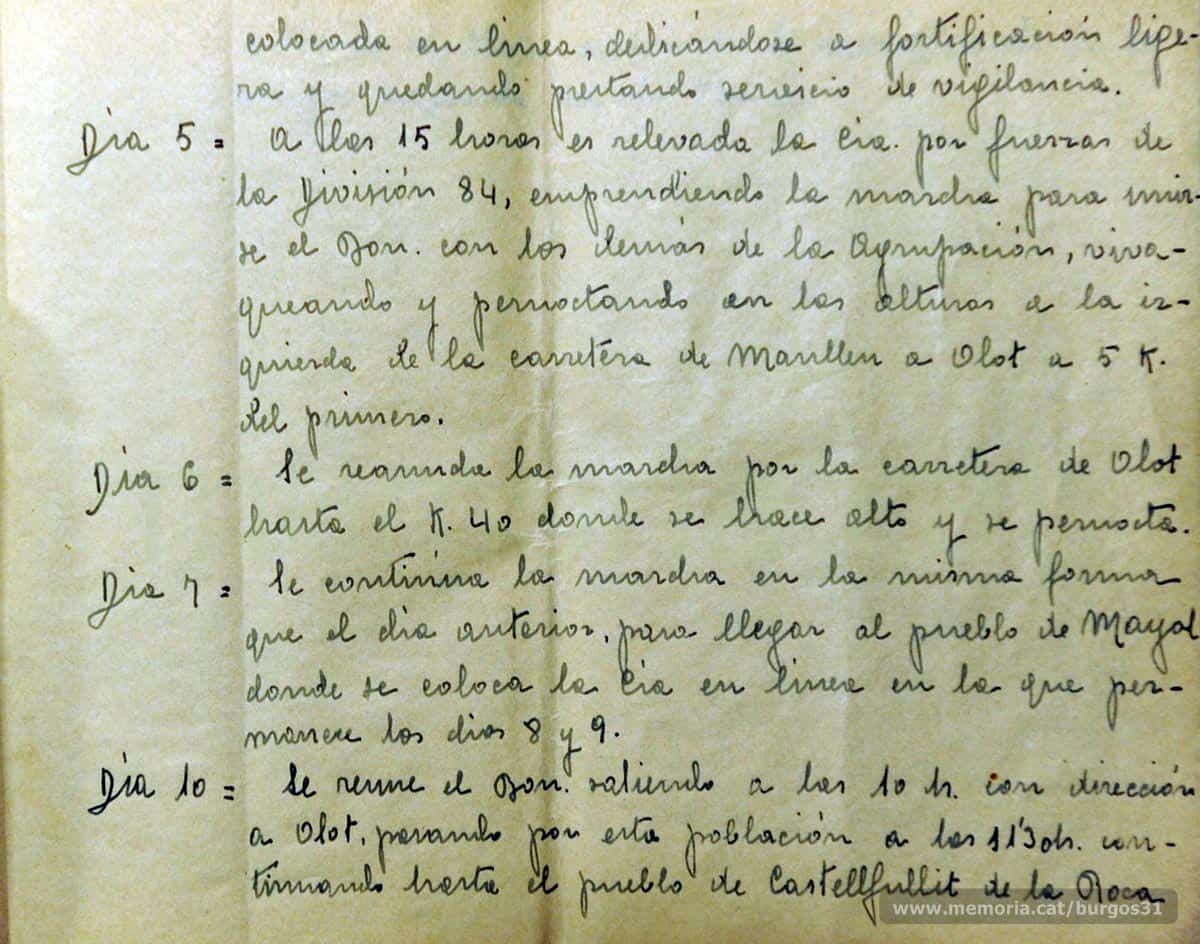 colocada en linea, dedicándose a fortificación lige-
ra y quedando prestando servicio de vigilancia.
Dia 5 = A las 15 horas es relevada la Cia. por fuerzas de
la División 84, emprendiendo la marcha para unir-
se el Bon. con los demás de la Agrupación, viva-
queando y pernoctando en las alturas a la iz-
quierda de la carretera de Manlleu a Olot a 5 K.
del primero.
Dia 6 = Se reanuda la marcha por la carretera de Olot
hasta el K. 40 donde se hace alto y se pernocta.
Dia 7 = Se continúa la marcha en la misma forma
que el dia anterior, para llegar al pueblo de Mayol
donde se coloca la Cia en linea en la que per-
manece los dias 8 y 9.
Dia 10 = Se reune el Bon. saliendo a las 10 h. con dirección
a Olot, pasando por esta población a las 11'30h. con-
tinuando hasta el pueblo de Castellfullit de la Roca
www.memoria.cat/burgos31